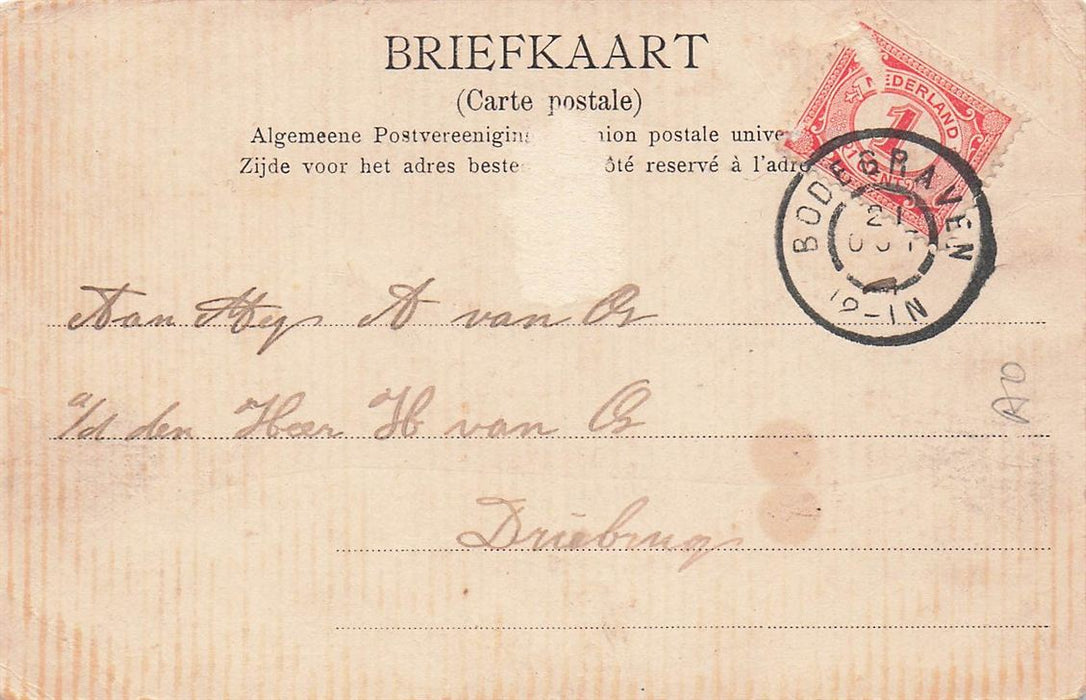 BRIEFKAART
(Carte postale)
Algemeene Postvereenigin nion postale unive
Zijde voor het adres beste ôté reservé à l'adre
NEDERLAND
1
CENT
BODEGRAVEN
21
OCT
12-1N
Aan Mej A van Os
a/d den Heer H van Os
Driebrug
AO